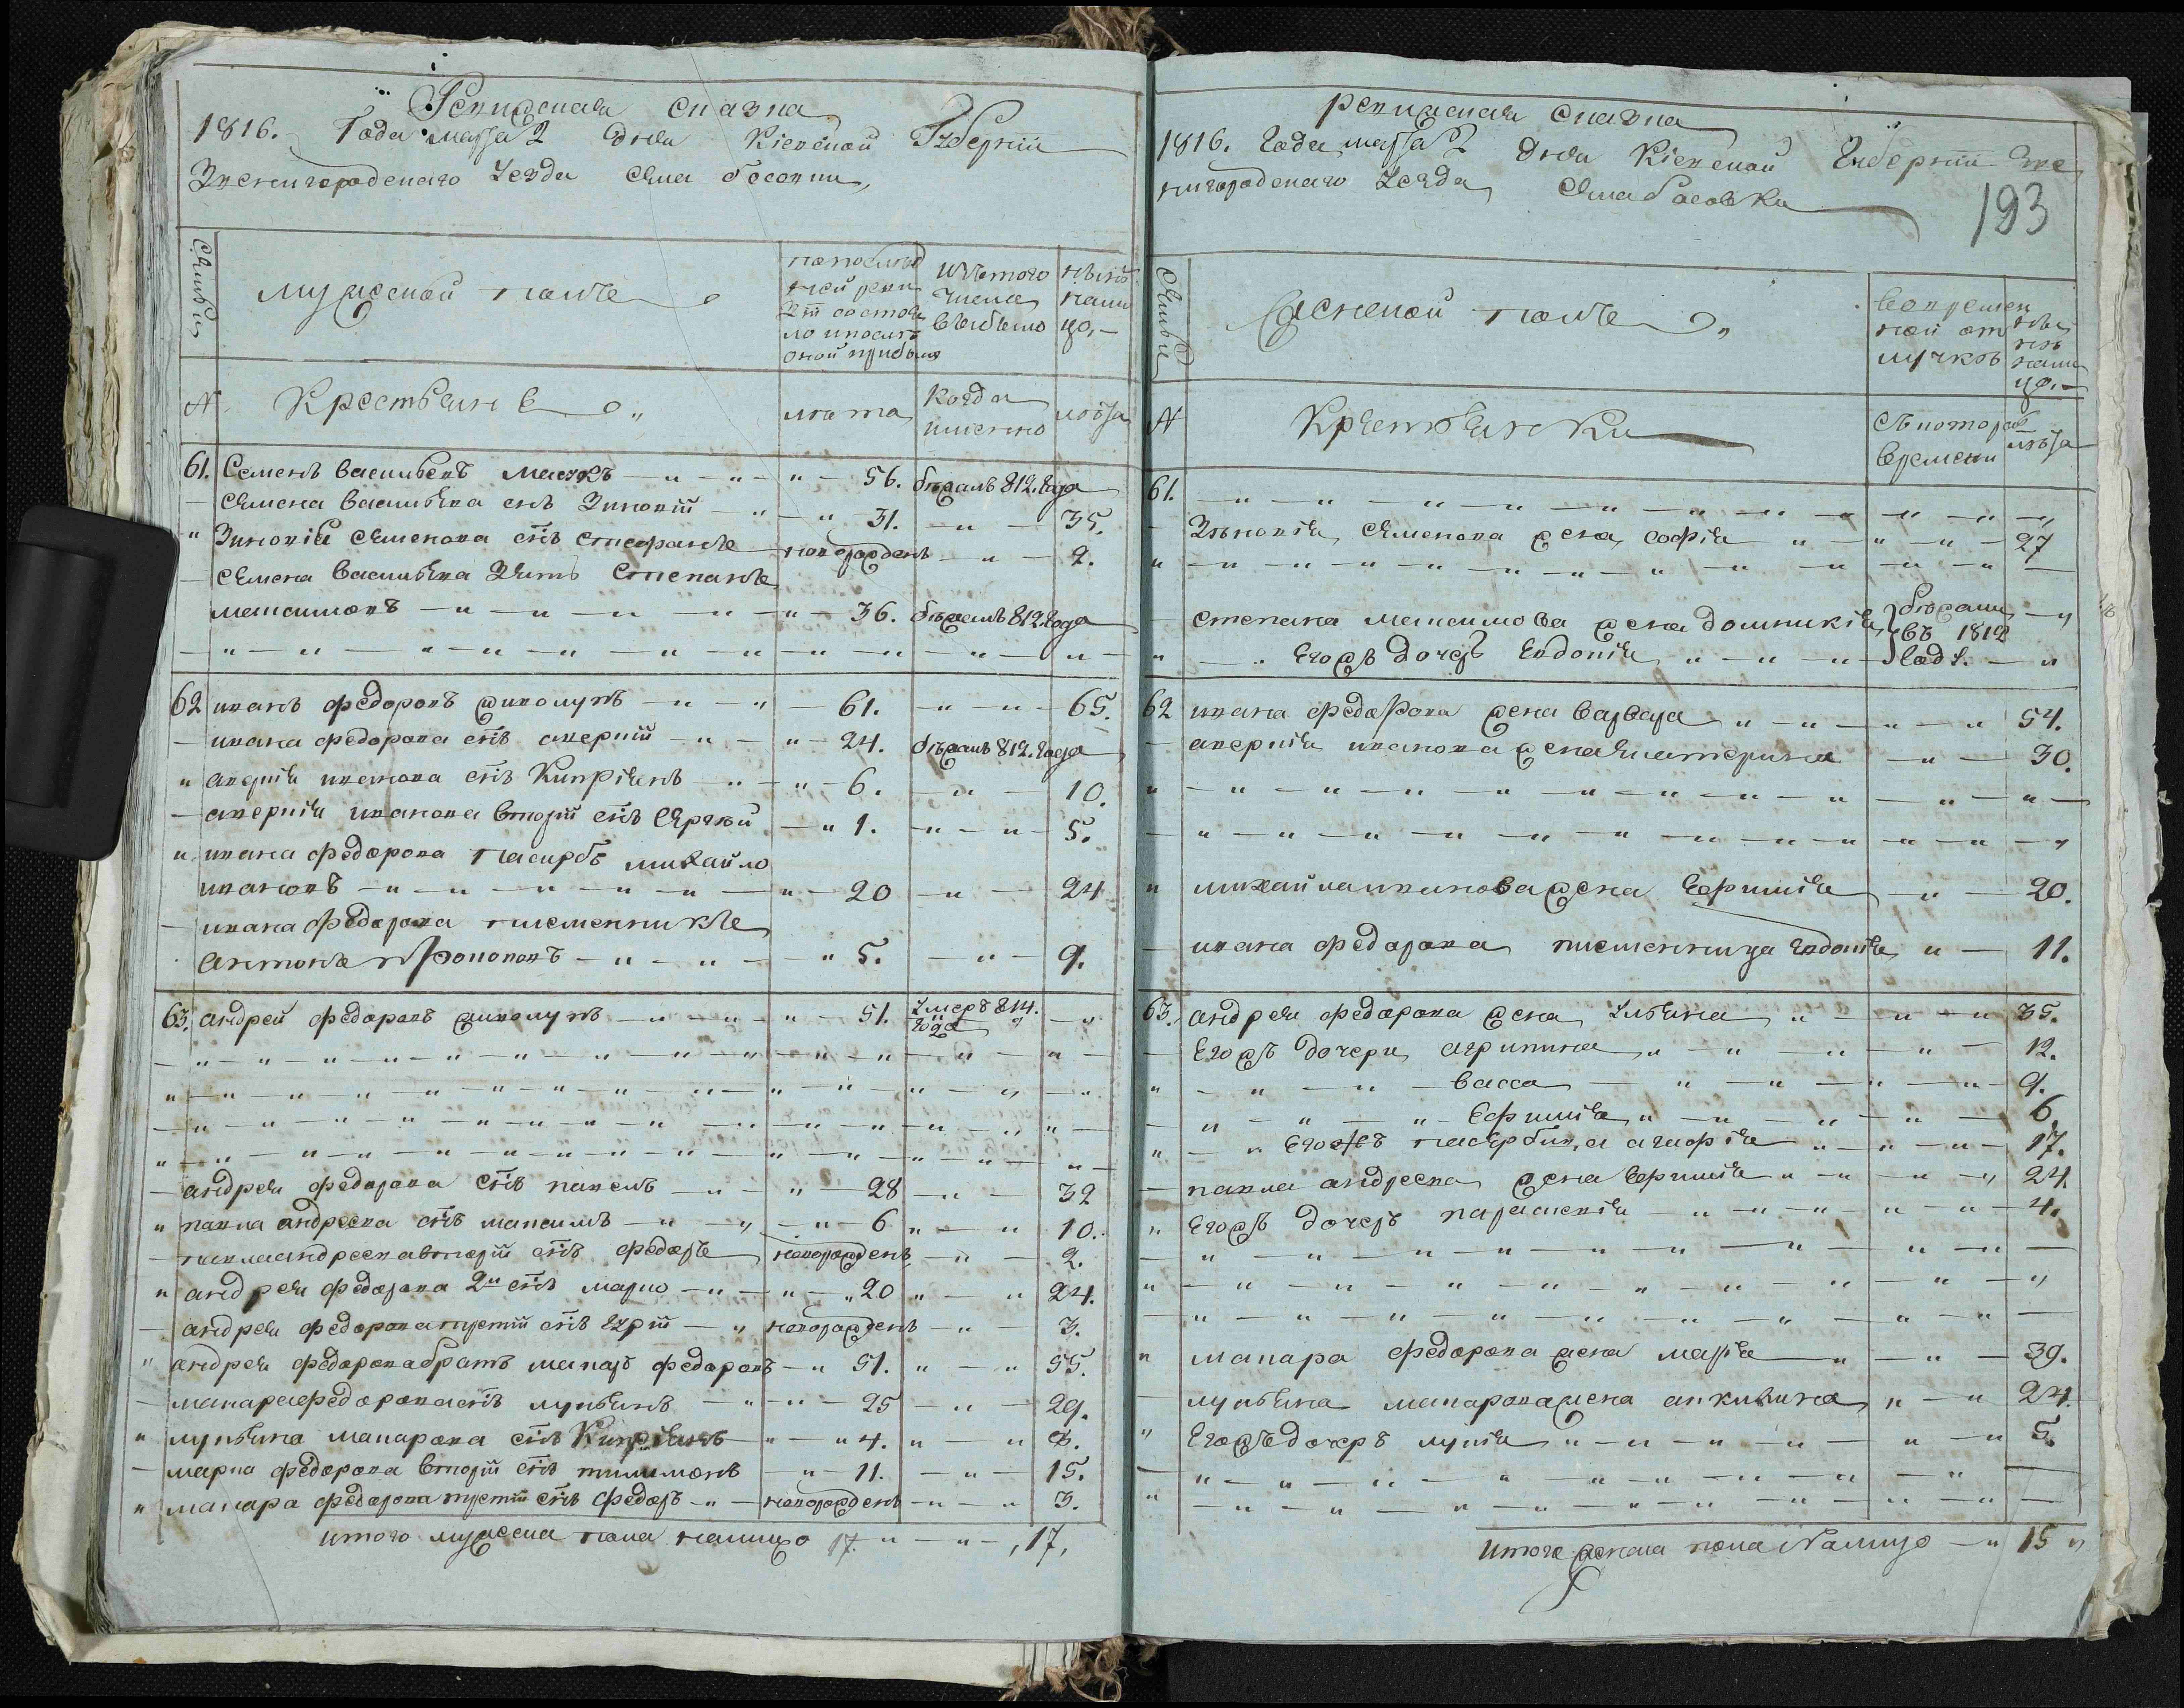 Ревижская сказка
1816. Года марта 2 дня Кіевской Губерніи
Звенигородского Уезда села босовки
семьи
мужеской поле
по послед
ней реви
зіи состоя
ло и после
оной прибыло
изъ того
числа
выбыло
ныне
нали
цо
№ Крестьяне
лета
когда
именно
лета
61. Семенъ васильевъ 56. бежалъ 812. года
семена васильева снъ Зиновій 31. 35.
Зиновія семенова снъ стефанъ новорожденъ 2.
семена васильева зять степанъ
максимовъ 36. бежалъ 812 года
62 иванъ федоровъ 61. 65.
ивана федорова снъ аверкій 24. бежалъ 812. года
аверкія иванова снъ Кипріянъ 6. 10.
аверкія иванова вторій снъ сергей 1. 5.
ивана федорова пасирбъ михайло
ивановъ 20 24
ивана федорова племенникъ
антонъ 5. 9.
63. андрей федоровъ 51. умеръ 814.
года
андрея федорова снъ павелъ 28 32
павла андреева снъ максимъ 6 10.
павла андреева вторій снъ федоръ новорожденъ 2.
андрея федорова 2й снъ марко 20 24.
андрея федорова третій снъ юрій новорожденъ 3.
андрея федорова братъ макаръ федоровъ 51. 55.
макара федорова снъ лукьянъ 25 29.
лукьяна макарова снъ Кипріянъ 4. 8.
марка федорова вторій снъ тилимонъ 11. 15.
макара федорова третій снъ федоръ новорожденъ 3.
итого мужеска пола налицо 17. 17,
ревижская сказка
1816. Года марта 2 дня Кіевской Губерніи Зве
нигородского Уезда села босовки
193
семьи
женской поле
во времен
ной от
лучкъ
ны
не
нали
цо
№ Крестьянки
съ котораго
времени
лета
61.
Зеновія семенова жена софія 27
степана максимова жена домникія бежали
его жъ дочеръ евдокія въ 1812
году.
62 ивана федорова жена варвара 54.
аверкія иванова жена екатерина 30.
михайла иванова жена ефимія 20.
ивана федорова племенница евдокія 11.
63. андрея федорова жена ульяна 35.
его жъ дочери агрипина 12.
васса 9.
ефимія 6.
его жъ пасербица агафія 17.
павла андреева жена ефимія 24.
его жъ дочеръ параскевія 4.
макара федорова жена марія 39.
лукьяна макарова жена акилина 24.
его жъ дочеръ лукія 5.
итого женска пола налицо 15